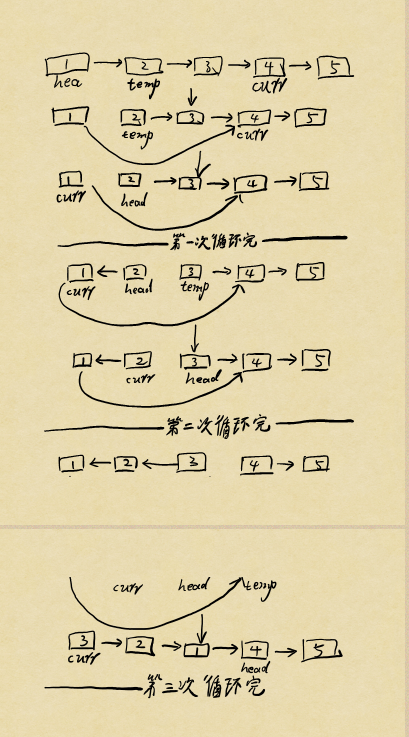 1 → 2 → 3 → 4 → 5
hea temp curr
1 2 → 3 → 4 → 5
temp curr
1 2 → 3 → 4 → 5
curr head
第一次循环完
1 ← 2 3 → 4 → 5
curr head temp
1 ← 2 3 → 4 → 5
curr head
第二次循环完
1 ← 2 ← 3 4 → 5
curr head temp
3 → 2 → 1 → 4 → 5
curr head
第三次循环完